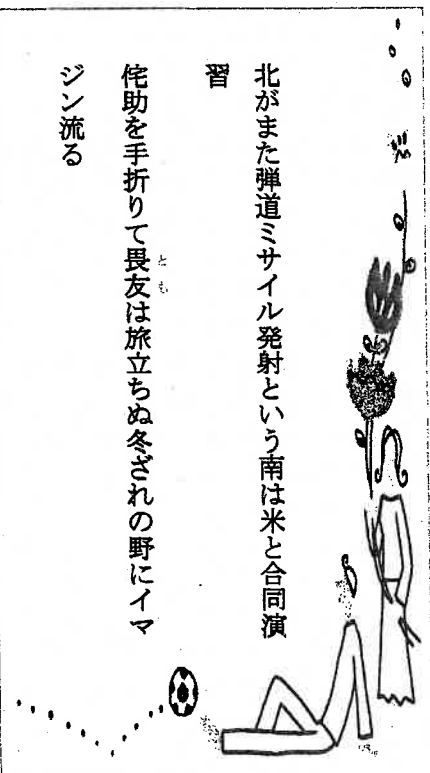 北がまた弾道ミサイル発射という南は米と合同演
習
侘助を手折りて畏友は旅立ちぬ冬ざれの野にイマ
ジン流る
とも